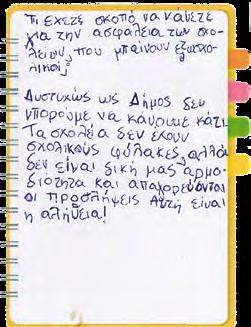 Τι έχετε σκοπό να κάνετε
για την ασφάλεια των σχο-
λείων, που μπαίνουν εξωσχο-
λικοί;
Δυστυχώς ως Δήμος δεν
μπορούμε να κάνουμε κάτι.
Τα σχολεία δεν έχουν
σχολικούς φύλακες, αλλά
δεν είναι δική μας αρμο-
διότητα και απαγορεύονται
οι προσλήψεις. Αυτή είναι
η αλήθεια!